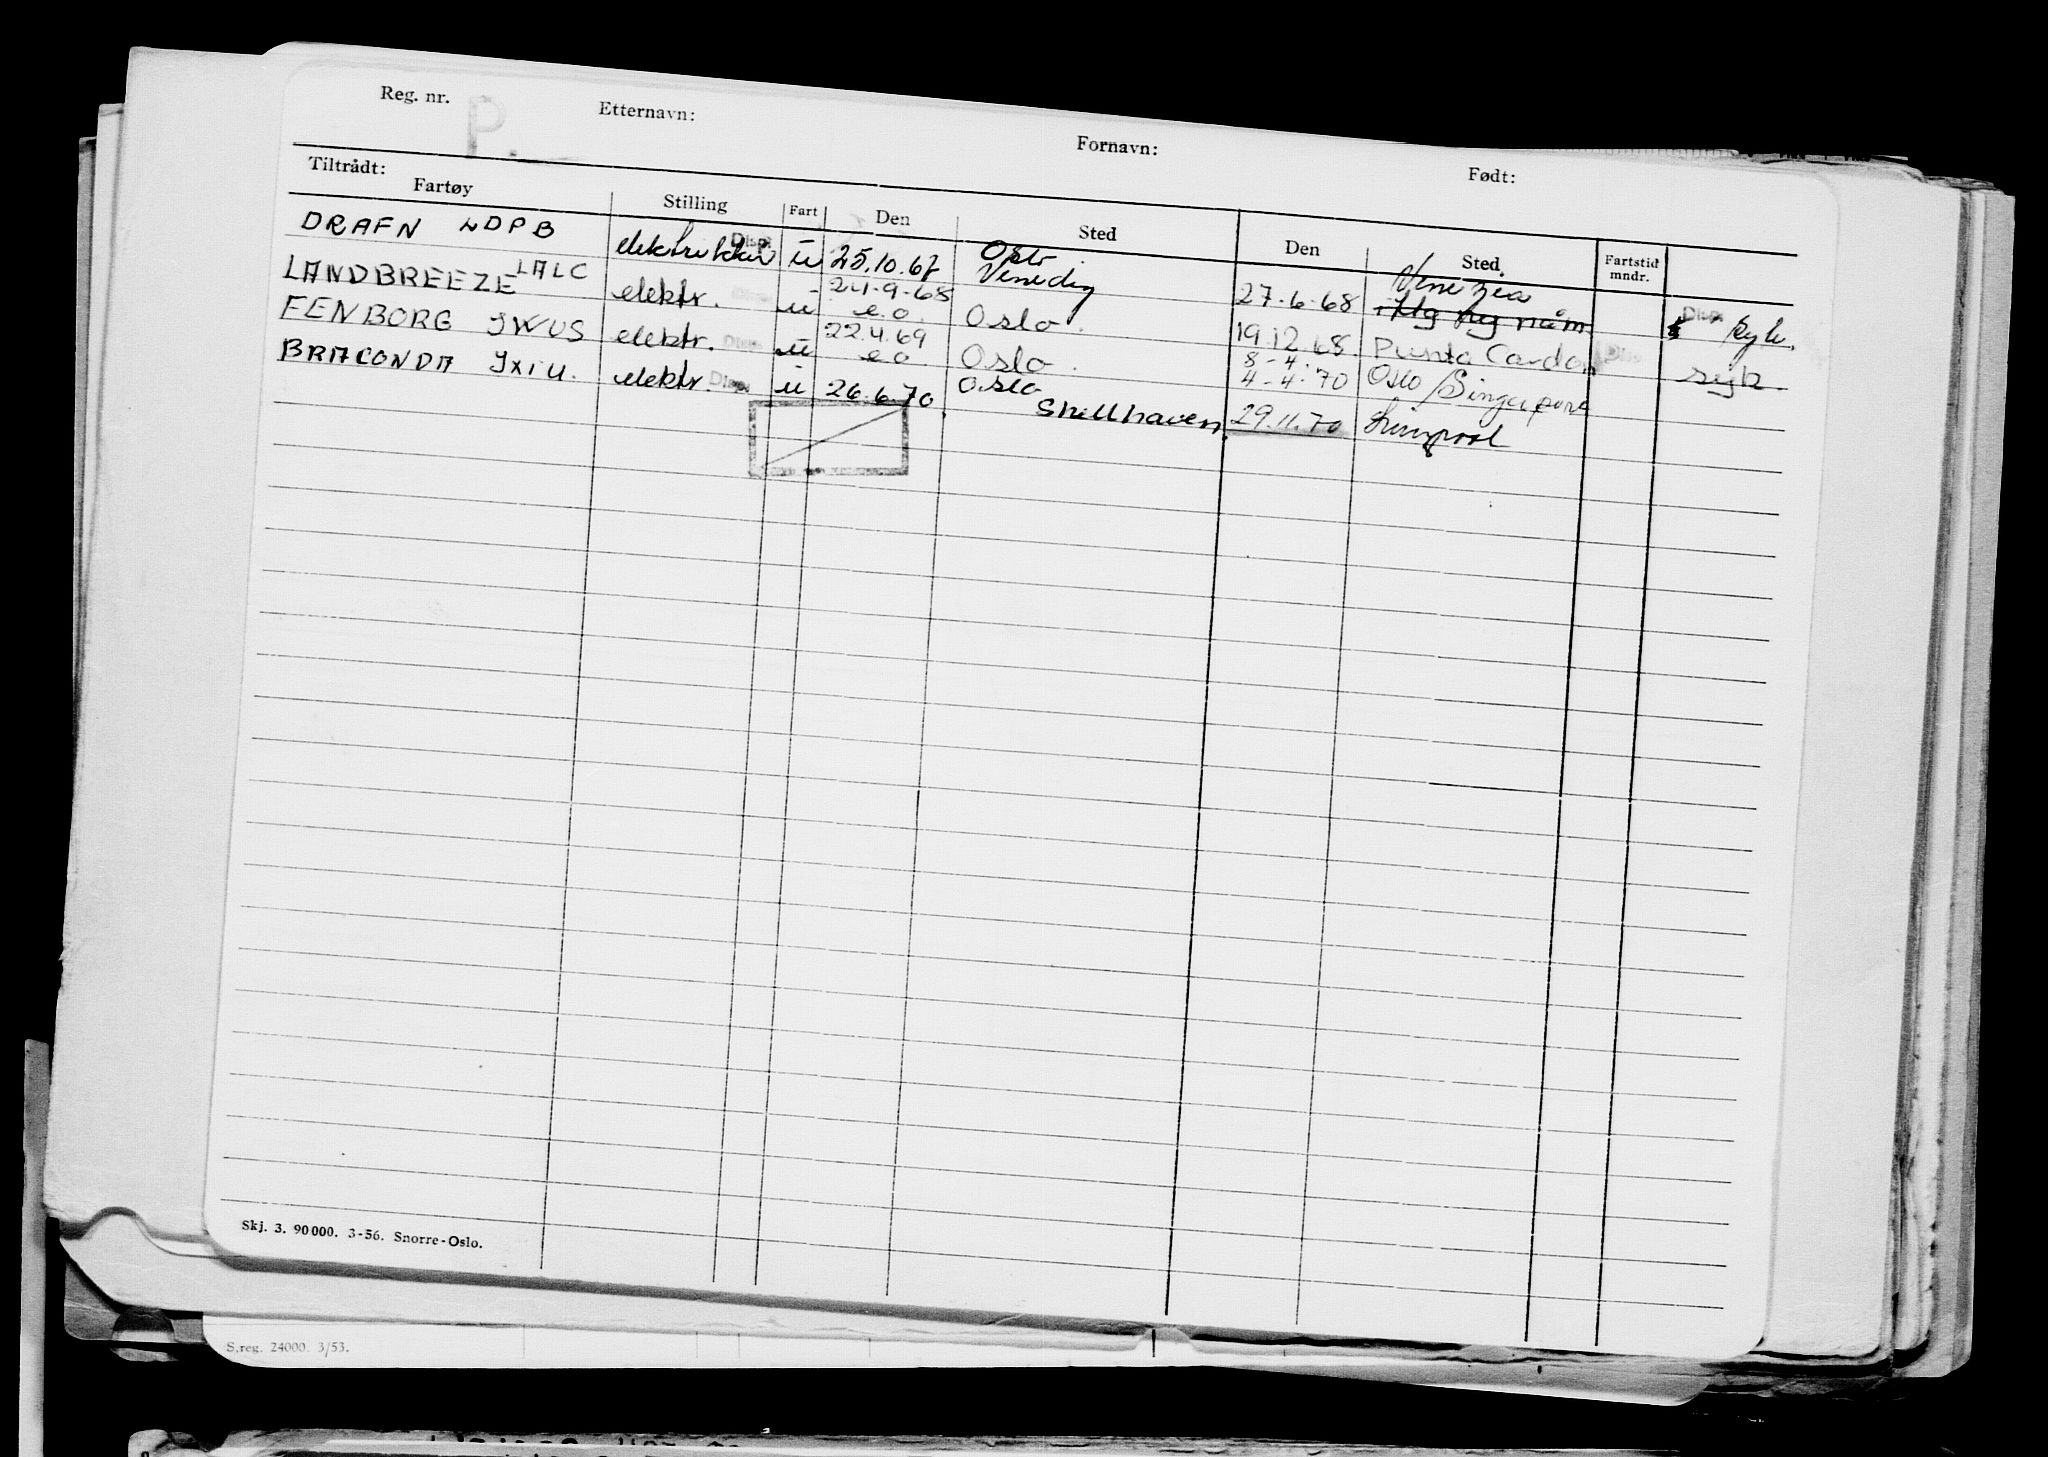 Reg. nr. P. Etternavn: Fornavn: Født:
Tiltrådt:
Fartøy Stilling Fart Den Sted Den Sted. Fartstid mndr.
DRAFN LDPB elektrikker Disp. u 25.10.67 Oslo Venedig 27.6.68 Venezia Disp.
LANDBREEZE LALC elektr. u 24-9-68 e.o. Oslo. 19.12.68. Punta Cardon syk
FENBORG JWUS elektr. Disp. u 22.4.69 e.o. Oslo. 8-4- 4-4-70 Oslo/Singapore
BRACONDA JXIU. elektr. Disp. u 26.6.70. Oslo Shellhaven 29.11.70 Liverpool
Skj. 3. 90000. 3-56. Snorre-Oslo.
S.reg. 24000. 3/53.